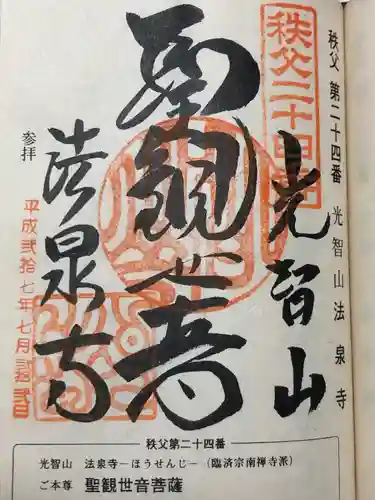 秩父 第二十四番 光智山法泉寺
秩父二十四番
光智山
聖観世音
法泉寺
参拝
平成弐拾七年七月
秩父第二十四番
光智山 法泉寺－ほうせんじ－(臨済宗南禅寺派)
ご本尊 聖観世音菩薩